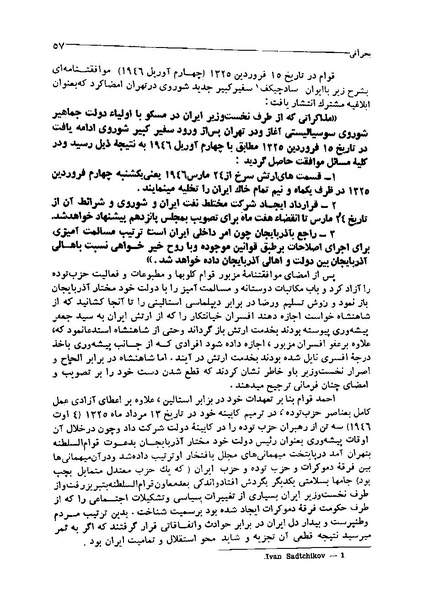 بحرانی ۵۷
قوام در تاریخ ۱۵ فروردین ۱۳۲۵ (چهارم آوریل ۱۹۴۶) موافقتنامه‌ای
بشرح زیر باایوان سادچیکف۱ سفیرکبیر جدید شوروی درتهران امضاکرد که‌بعنوان
ابلاغیه مشترك انتشار یافت :
«مذاکراتی که از طرف نخست‌وزیر ایران در مسکو با اولیاء دولت جماهیر
شوروی سوسیالیستی آغاز ودر تهران پس‌از ورود سفیر کبیر شوروی ادامه یافت
در تاریخ ۱۵ فروردین ۱۳۲۵ مطابق با چهارم آوریل ۱۹۴۶ به نتیجهٔ ذیل رسید ودر
کلیهٔ مسائل موافقت حاصل گردید :
۱ – قسمت های‌ارتش سرخ از۲۴ مارس۱۹۴۶ یعنی‌یکشنبه چهارم فروردین
۱۳۲۵ در ظرف یکماه و نیم تمام خاك ایران را تخلیه مینمایند .
۲ – قرارداد ایجاد شرکت مختلط نفت ایران و شوروی و شرائط آن از
تاریخ ۲۴ مارس تا انقضاء هفت ماه برای تصویب بمجلس پانزدهم پیشنهاد خواهدشد.
۳ – راجع باذربایجان چون امر داخلی ایران است ترتیب مسالمت آمیزی
برای اجرای اصلاحات برطبق قوانین موجوده وبا روح خیر خواهی نسبت باهالی
آذربایجان بین دولت و اهالی آذربایجان داده خواهد شد . »
پس از امضای موافقتنامهٔ مزبور قوام کلوبها و مطبوعات و فعالیت حزب‌توده
را آزاد کرد و باب مکاتبات دوستانه و مسالمت آمیز را با دولت خود مختار آذربایجان
باز نمود و روش تسلیم ورضا در برابر دیپلماسی استالینی را تا آنجا کشانید که از
شاهنشاه خواست اجازه دهند افسران خیانتکار را که از ارتش ایران به سید جعفر
پیشه‌وری پیوسته بودند بخدمت ارتش باز گرداند وحتی از شاهنشاه استدعانمود که،
علاوه برعفو افسران مزبور ، اجازه داده شود افرادی کـه از جانب پیشه‌وری باخذ
درجهٔ افسری نایل شده بودند بخدمت ارتش در آیند . اما شاهنشاه در برابر الحاح و
اصرار نخست‌وزیر باو خاطر نشان کردند که قطع شدن دست خود را بر تصویب و
امضای چنان فرمانی ترجیح میدهند .
احمد قوام بنا بر تعهدات خود در برابر استالین ، علاوه بر اعطای آزادی عمل
کامل بعناصر حزب‌توده ، در ترمیم کابینه خود در تاریخ ۱۳ مرداد ماه ۱۳۲۵ (۴ اوت
۱۹۴۶) سه تن از رهبران حزب توده را در کابینهٔ دولت شرکت داد وچون درخلال آن
اوقات پیشه‌وری بعنوان رئیس دولت خود مختار آذربایجـان بدعوت قوام‌السلطنه
بتهران آمد درپایتخت میهمانی‌های مجلل بافتخار اوترتیب داده‌شد ودرآن‌میهمانی‌ها
بین فرقهٔ دموکرات و حزب توده و حزب ایران ( که یك حزب معتدل متمایل بچپ
بود) جامها بسلامتی یکدیگر بگردش افتادواندکی بعدمعاون‌قوام‌السلطنه‌بتبریزرفت‌واز
طرف نخست‌وزیر ایران بسیاری از تغییرات سیاسی وتشکیلات اجتماعی را که از
طرف حکومت فرقهٔ دموکرات ایجاد شده بود برسمیت شناخت . بدین ترتیب مـردم
وطنپرست و بیدار دل ایران در برابر حوادث واتفاقاتی قرار گرفتند که اگر به ثمر
میرسید نتیجهٔ قطعی آن تجزیه و شاید محو استقلال و تمامیت ایران بود .
1 — Ivan Sadtchikov.